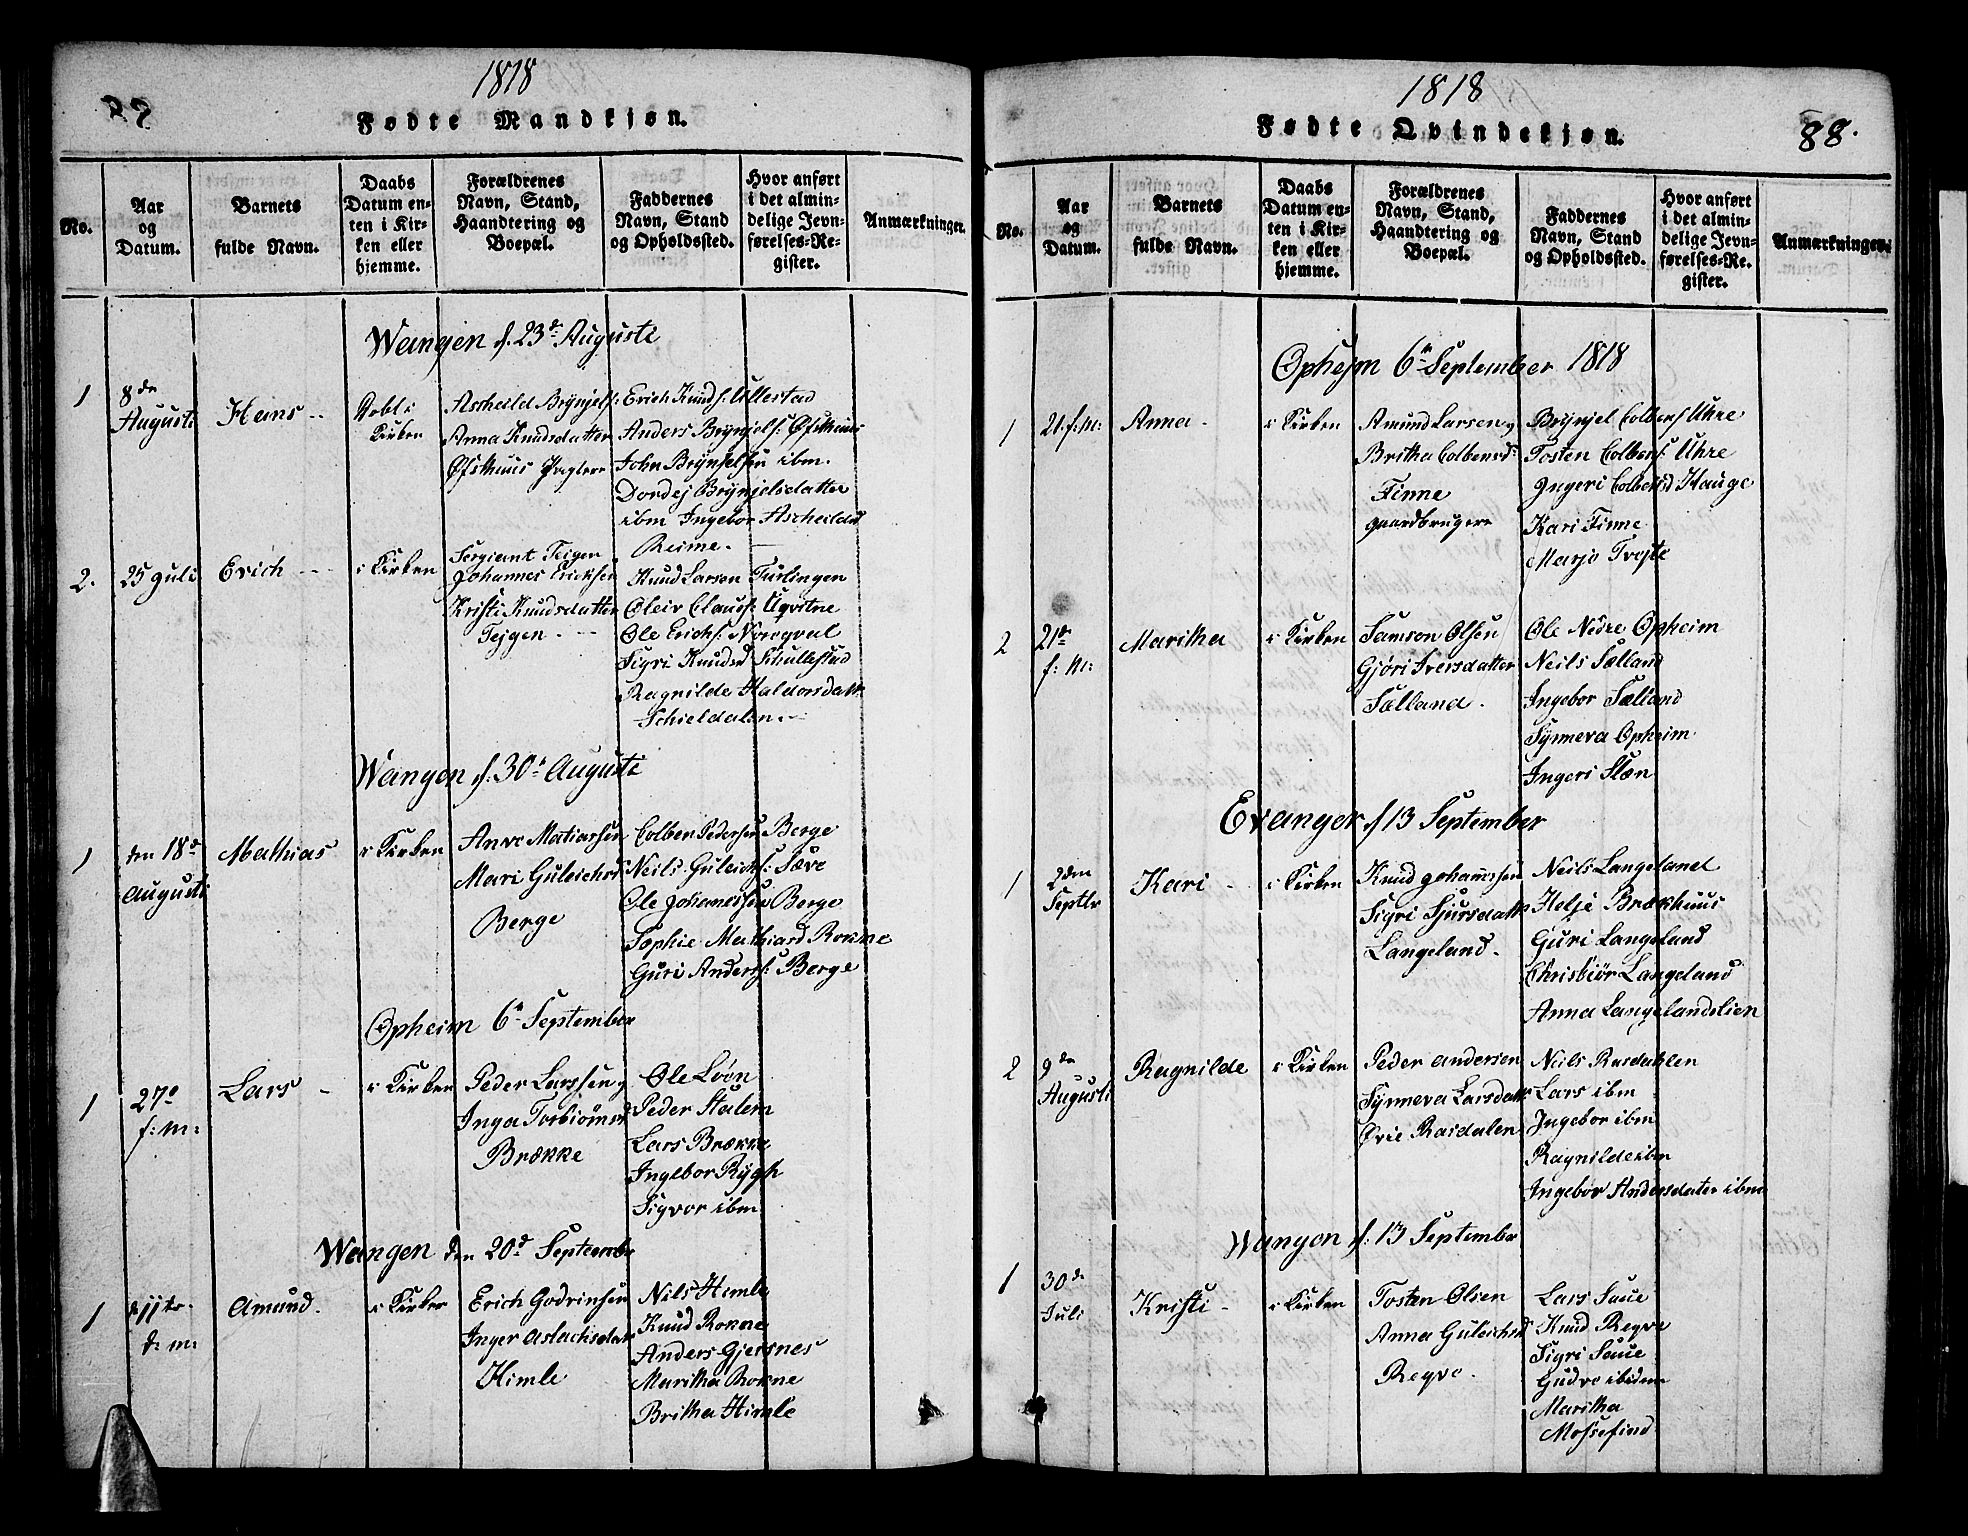 1818
Fødte Mandkjøn.
No.
Aar
og
Datum.
Barnets
fulde Navn.
Daabs
Datum en-
ten i Kir-
ken eller
hjemme.
Forældrenes
Navn, Stand,
Haandtering og
Boepæl.
Faddernes
Navn, Stand
og Opholdssted.
Hvor anført
i det almin-
delige Jevn-
førelses-Re-
gister.
Anmærkninger.
Wangen d. 23d Augusti
1
8de
Augusti
Hans --
Døbt i
Kirken
Ascheild Brÿnjels:
Anna Knudsdatter
Øfsthuus
Erich Knuds: Ullestad
Anders Brÿnjels: Øfsthuus
John Brÿnjelsen ibm.
Dordej Brÿnjelsdatter
ibm Ingebor Ascheildsd
Reime. -
2.
25 Juli
Erich ---
i Kirken
Sergiant Tejgen
Johannes Ericksen
Kristi Knudsdatter
Tejgen. --
Knud Larsen Turlingen
Oleiv Claus: Uqvitne
Ole Erichs: Norqval
Sigri Knudsd Schullestad
Ragnilde Haldorsdatt
Schieldalen --
Wangen d. 30d Augusti
1
den 18d
Augusti
Mathias
i Kirken
Anve Matiassen
Mari Guleichsd
Berge
Colben Pedersen Berge
Neils Guleichs: Sæve
Ole Johanessen Berge
Sophie Mathiasd Rokne
Guri Anders: Berge
Opheim 6te September
1
27d
f: m:
Lars -
i Kirken
Peder Larssen og
Inga Torbiörnsd
Brække
Ole Löön
Peder Halem
Lars Brække
Ingebor Rÿgh
Sigvor ibm
Wangen den 20d September
1
d 11te
d: m:
Amund.
i Kirken
Erich Godvinsen
Inger Aslachsdat
Himle
Nils Himle
Knud Rokne
Anders Gjersnes
Maritha Rokne
Britha Himle
1818
88.
Fødte Qvindekjøn.
No.
Aar
og
Datum.
Barnets
fulde Navn.
Daabs
Datum en-
ten i Kir-
ken eller
hjemme.
Forældrenes
Navn, Stand,
Haandtering og
Boepæl.
Faddernes
Navn, Stand
og Opholdssted.
Hvor anført
i det almin-
delige Jevn-
førelses-Re-
gister.
Anmærkninger.
Ophejm 6te September 1818
1
21. f: m:
Anna -
i Kirken
Amund Larsen og
Britha Colbensd:
Finne
gaardbrugere
Brÿnjel Colbens Uhre
Tosten Colbens: Uhre
Ingeri Colbensd Hauge
Kari Finne
Marjo Tvejte
2
21de
f: m:
Maritha
i Kirken
Samson Olsen
Gjöri Iversdatter
Sælland -
Ole Nedre Opheim
Neils Sælland
Ingebor Sælland
Sÿnneva Opheim
Ingeri Slæn
Evanger d 13 September
1
2den
Septbr
Kari -
i Kirken
Knud Johannssen
Sigri Sjursdatt
Langeland -
Neils Langeland
Helje Brækhuus
Guri Langeland
Christiör Langeland
Anna Langelandslien
2
9de
Augusti
Ragnilde
i Kirken
Peder Andersen
Sÿnneva Larsdatt
Øvie Rasdalen
Neils Rasdahlen
Lars ibm
Ingebor ibm
Ragnilde ibm
Ingebor Andersdater ibm
Wangen d. 13 September
1
30de
Juli
Kristi -
i Kirken
Tosten Olsen
Anna Guleichsd
Reqve -
Lars Saue
Knud Reqve
Sigri Saue
Gudve ibidem
Maritha
Mossefind